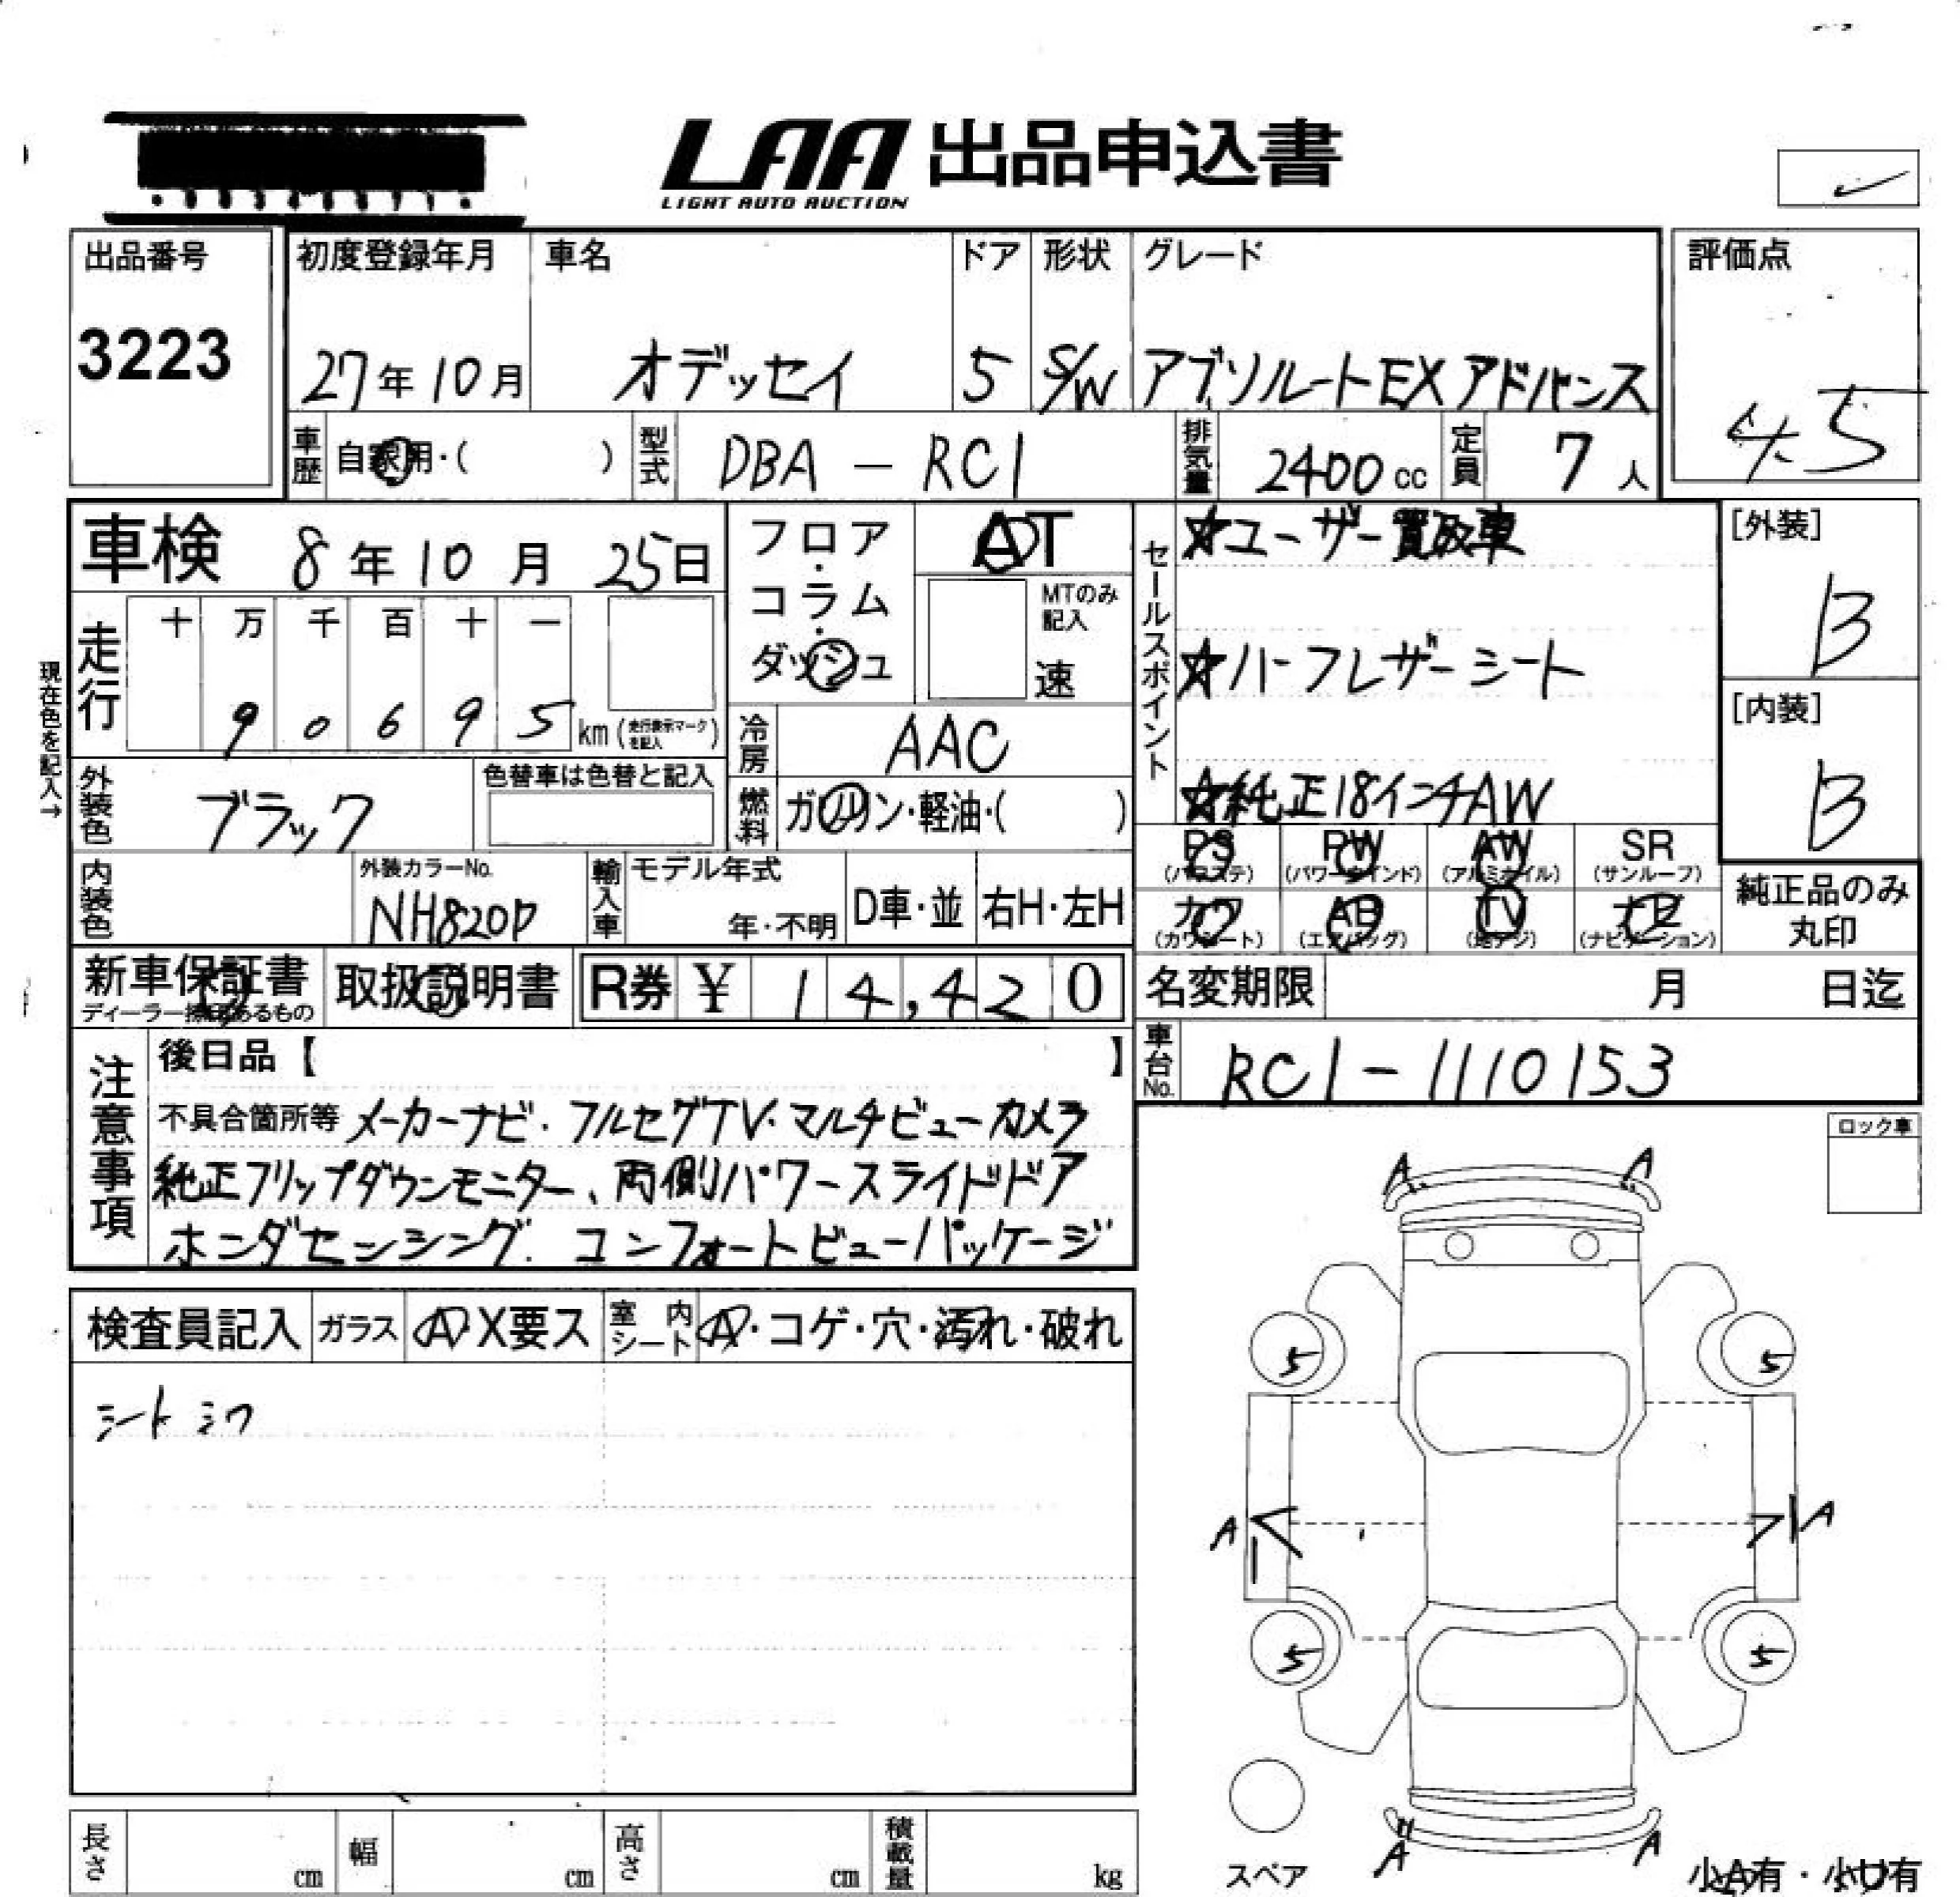 LAA 出品申込書
LIGHT AUTO AUCTION
出品番号
3223
初度登録年月
27年10月
車名
オデッセイ
ドア
5
形状
S/W
グレード
アブソルートEXアドバンス
評価点
4.5
車歴 自家用・( )
型式 DBA - RC1
排気量 2400cc
定員 7人
車検 8年10月25日
走行
十 万 千 百 十 一
9 0 6 9 5 km (走行表示マークを記入)
現在色を記入→
フロア・コラム・ダッシュ
AT
MTのみ記入
速
冷房 AAC
燃料 ガソリン・軽油・( )
セールスポイント
☆ユーザー買取車
☆ハーフレザーシート
☆純正18インチAW
[外装]
B
[内装]
B
外装色 ブラック
色替車は色替と記入
内装色
外装カラーNo.
NH820P
輸入車
モデル年式
年・不明
D車・並
右H・左H
PS (パワステ)
PW (パワーウインド)
AW (アルミホイル)
SR (サンルーフ)
カワ (カワシート)
AB (エアバッグ)
TV (地デジ)
ナビ (ナビゲーション)
純正品のみ
丸印
新車保証書
ディーラー捺印あるもの
取扱説明書
R券 ¥ 14,420
名変期限 月 日迄
車台No. RC1-1110153
注意事項
後日品【 】
不具合箇所等 メーカーナビ.フルセグTV.マルチビューカメラ
純正フリップダウンモニター、両側パワースライドドア
ホンダセンシング.コンフォートビューパッケージ
ロック車
検査員記入
ガラス A・X要ス
室内シート A・コゲ・穴・汚れ・破れ
シートシワ
A A
5 5
A A
5 5
A A
スペア
小A有・小U有
長さ cm
幅 cm
高さ cm
積載量 kg